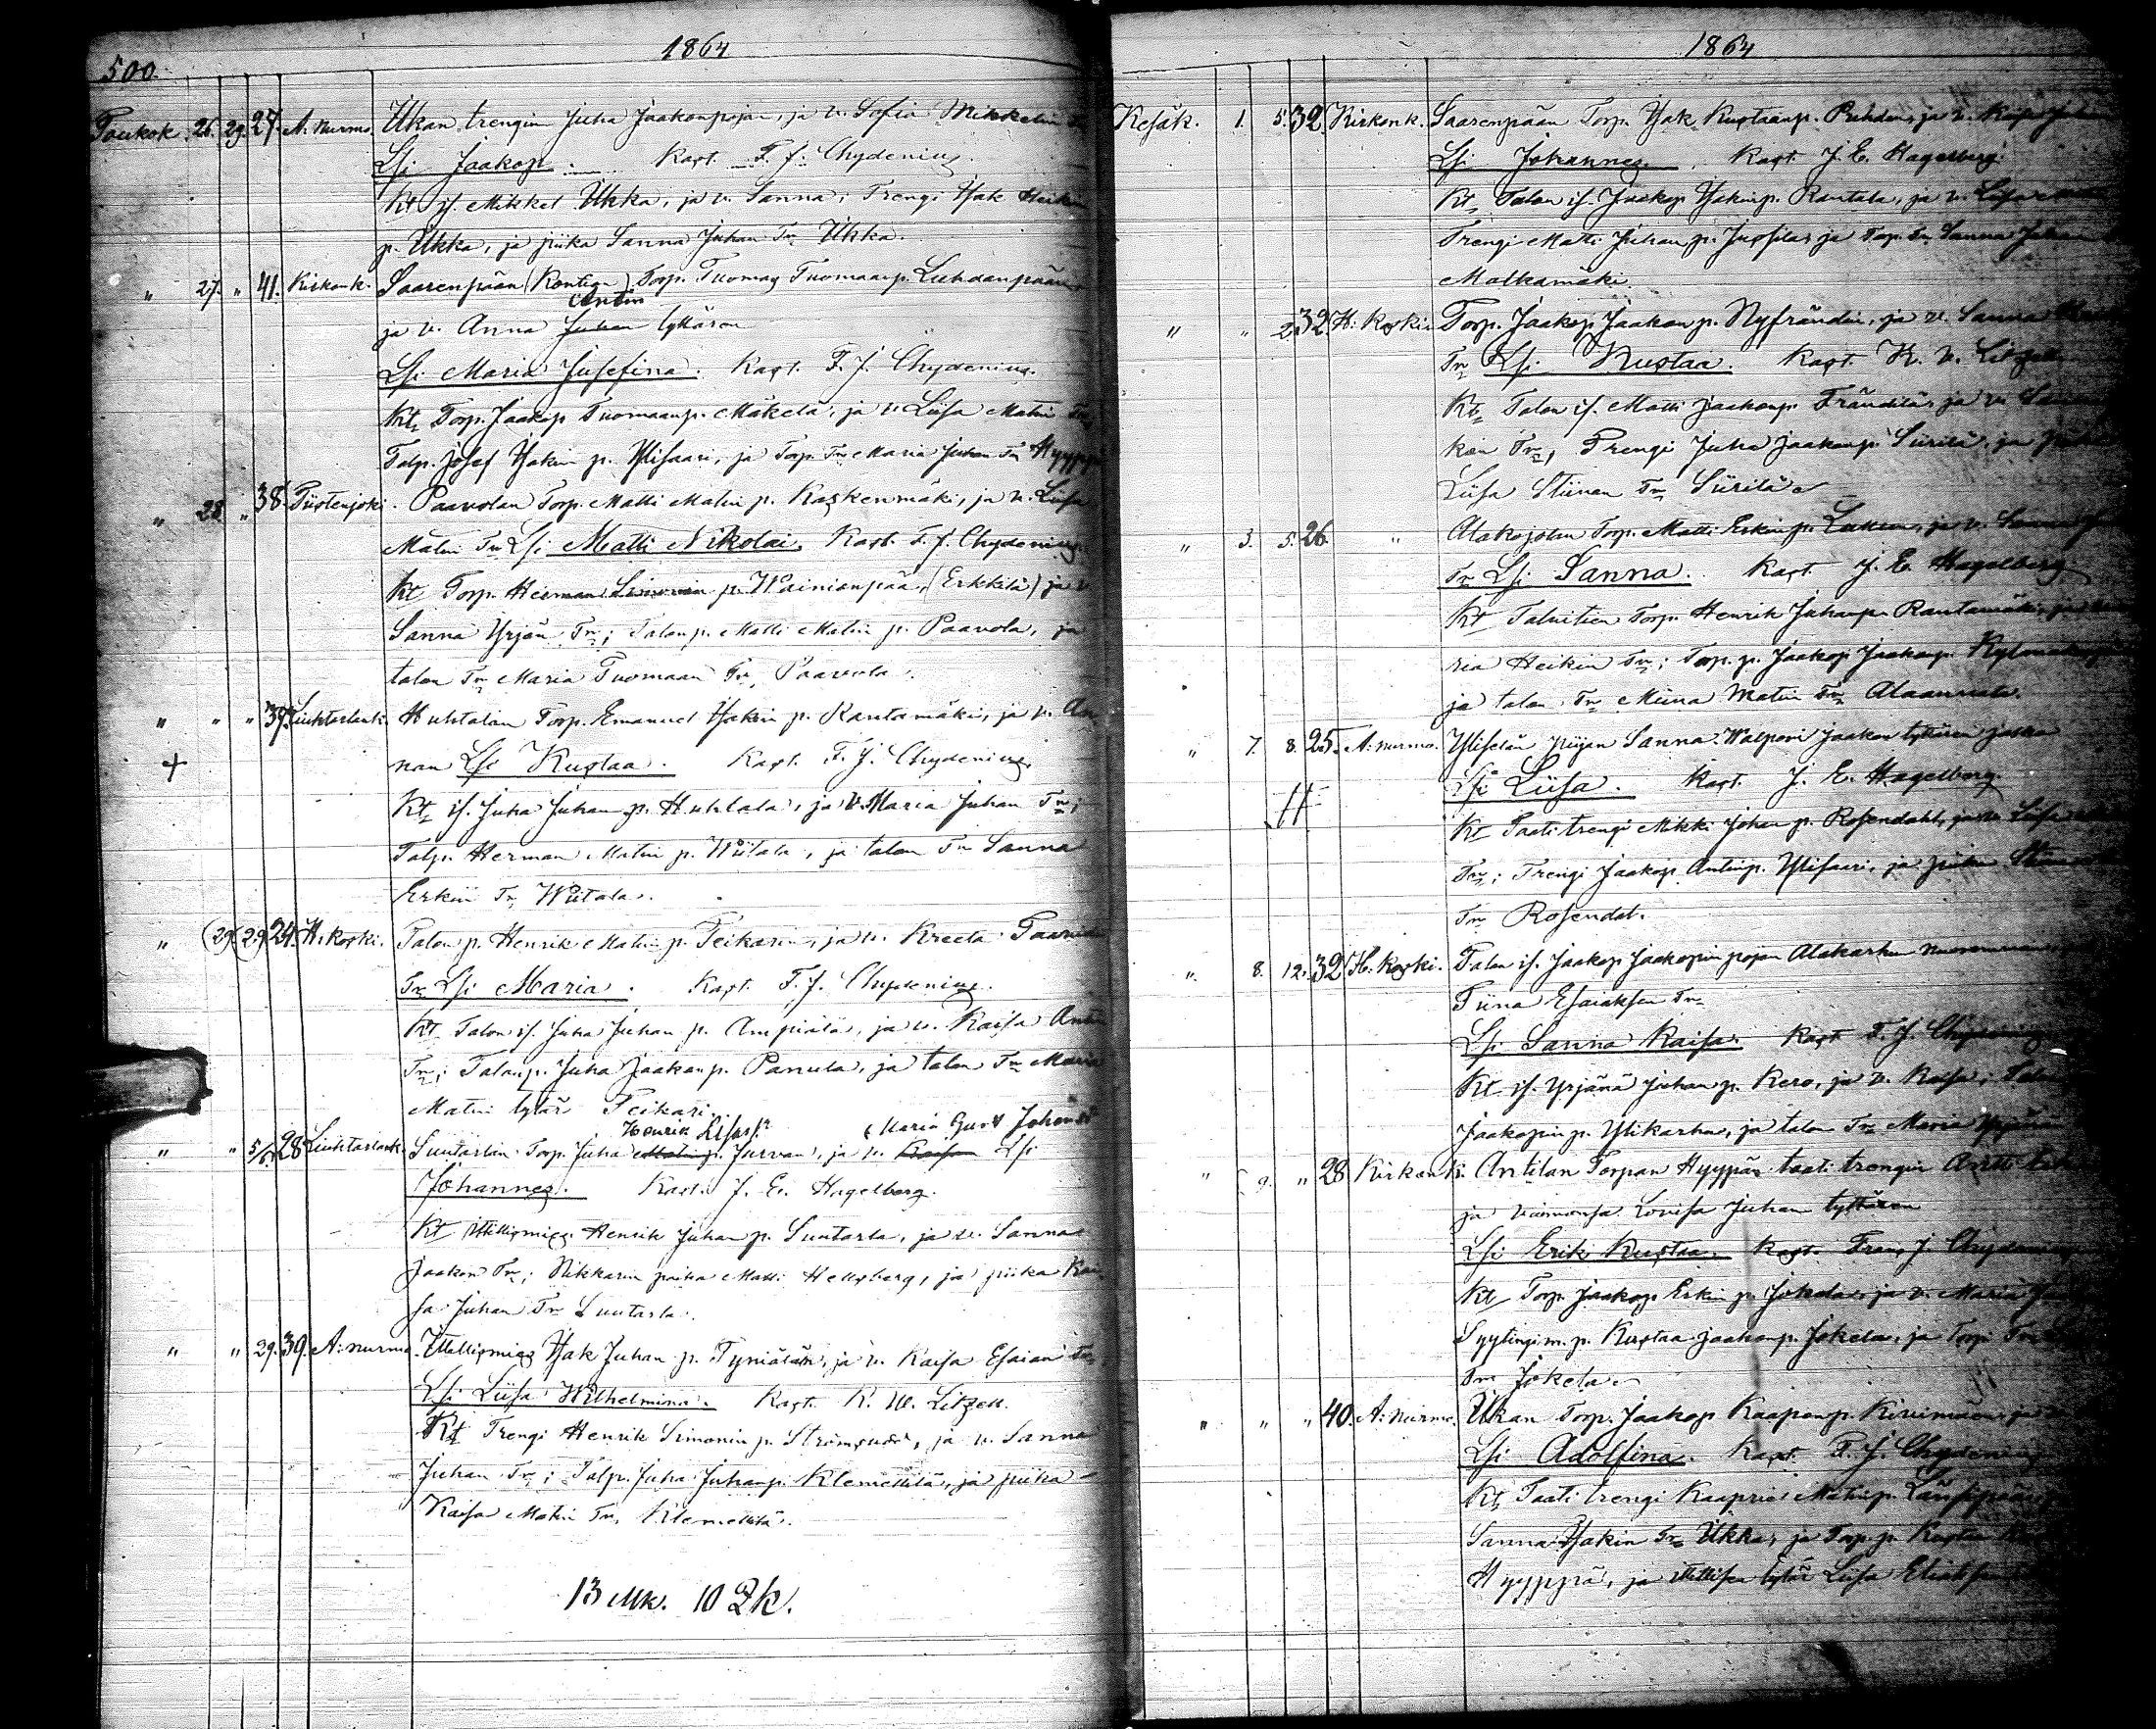 500.
1864
Toukok. 26. 29. 27. A. Nurmo. Ukan trengin Juha Jaakonpojan, ja v. Sofia Mikkelin
Lsi Jaakop. Kast. F. J. Chydenius.
Kt is. Mikkel Ukka, ja v. Sanna; Trengi Isak Heikin
p. Ukka, ja piika Sanna Juhan Tr Ukka.
" 27. " 41. Kirkonk. Saarenpään (Kontion) Torp. Tuomas Tuomaanp. Luhdanpään
Antin
ja v. Anna Juhan tyttären
Lsi Maria Josefina. Kast. F. J. Chydenius.
Kt Torp. Jaakop Tuomaanp. Mäkelä, ja v. Liisa Matin Tr
Talp. Josef Isakin p. Ylisaari, ja Torp. Tr Maria Juhan Tr Hyyppä
" 28. " 38. Tiistenjoki. Paavolan Torp. Matti Matin p. Kaskenmäki, ja v. Liisa
Matin Tr Lsi Matti Nikolai. Kast. F. J. Chydenius.
Kt Torp. Herman Simonin p. Wainionpää, (Erkkilä) ja v
Sanna Yrjän Tr; Talonp. Matti Matin p. Paavola, ja
talon Tr Maria Tuomaan Tr, Paavola.
" " " 39. Liuhtarlank. Huhtalan Torp. Emanuel Isakin p. Rantamäki, ja v. An
+ nan Lsi Kustaa. Kast. F. J. Chydenius.
Kt is. Juha Juhan p. Huhtala, ja v. Maria Juhan Tr;
Talp. Herman Matin p. Wiitala, ja talon Tr Sanna
Erkin Tr Wiitala.
" (29.) 29. 24. H. koski. Talon p. Henrik Matin p. Teikarin, ja v. Kreeta
Tr Lsi Maria. Kast. F. J. Chydenius.
Kt Talon is. Juha Juhan p. Ampiala, ja v. Kaisa Antin
Tr; Talonp. Juha Jaakonp. Panula, ja talon Tr Maria
Matin tytär Teikari.
Henrik Maria Gust Johans
" " 5/6. 28 Liuhtarlank. Suutarlan Torp. Juha Matinp. Jurvan, ja v. Kaisan Lsi
Johannes. Kast. J. E. Hagelberg.
Kt Itellismies Henrik Juhan p. Suutarla, ja v. Sanna
Jaakon Tr; Nikkarin poika Matti Hellsberg, ja piika Kai
sa Juhan Tr Suutarla.
" " 29. 39. A: nurmo. Itellismies Isak Juhan p. Tyniälän, ja v. Kaisa Esaian Tr
Lsi Liisa Wilhelmina. Kast. K. W. Litzell.
Kt Trengi Henrik Simonin p. Strömsnäs, ja v. Sanna
Juhan Tr; Talp. Juha Juhanp. Klemettilä, ja piika
Kaisa Matin Tr, Klemettilä.
13 Mk. 10 Qk.
1864
Kesäk. 1. 5. 32. Kirkonk. Saarenpään Torp. Isak Kustaanp. Puhdon, ja v. Kaisa
Lsi Johannes. Kast. J. E. Hagelberg.
Kt, Talon is. Jaakop Isakinp. Rantala, ja v. Liisa
Trengi Matti Juhan p. Jussila, ja Torp. Tr Sanna Juhan
Malkamäki.
" " 2. 32. H. Koski. Torp. Jaakop Jaakon p. Nyfrändin, ja v. Sanna
Tr Lsi Kustaa. Kast. K. W. Litzell.
Kt Talon is. Matti Jaakonp. Frändilä, ja v.
kon Tr, Trengi Juha Jaakonp. Siirilä, ja
Liisa Stiinan Tr Siirilä.
" 3. 5. 26. " Alakojolan Torp. Matti Erkin p. Luken, ja v. Sanna
Tr Lsi Sanna. Kast. J. E. Hagelberg.
Kt Talvitien Torp. Henrik Juhanp. Rantamäki, ja
ria Heikin Tr; Torp. p. Jaakop Jaakonp.
ja talon Tr Miina Matin Tr Alaannala.
" 7. 8. 25. A: nurmo. Ylisetän piijan Sanna Walpori Jaakon tyttären
Lsi Liisa. Kast. J. E. Hagelberg.
Kt Taatitrengi Mikki Johan p. Rosendahl, ja v. Liisa
Tr; Trengi Jaakop Antinp. Ylisaari, ja piika
Tr Rosendal.
" 8. 12. 32. H. koski. Talon is. Jaakop Jaakopin pojan Alakarhun
Tiina Esaiaksen Tr
Lsi Sanna Kaisa. Kast. F. J. Chydenius
Kt is. Yrjänä Juhan p. Kero, ja v. Kaisa; Talon
Jaakopin p. Ylikarhu, ja talon Tr Maria
" 9. " 28 Kirkonk. Antilan Torpan Hyypän taati trengin Antti
ja vaimonsa Lovisa Juhan tyttären
Lsi Erik Kustaa. Kast. Frans J. Chydenius
Kt Torp. Jaakop Erkin p. Jokela, ja v. Maria
Syytingim. p. Kustaa Jaakonp. Jokela, ja Torp. Tr
Tr Jokela.
" " " 40. A: nurmo. Ukan Torp. Jaakop Kaaponp. Kivimäen, ja
Lsi Adolfina. Kast. F. J. Chydenius
Kt, Taati trengi Kaaprio Matinp. Länsipää,
Sanna Isakin Tr Ukka, ja Torp. p. Kustaa
Hyyppä, ja itellisen tytär Liisa